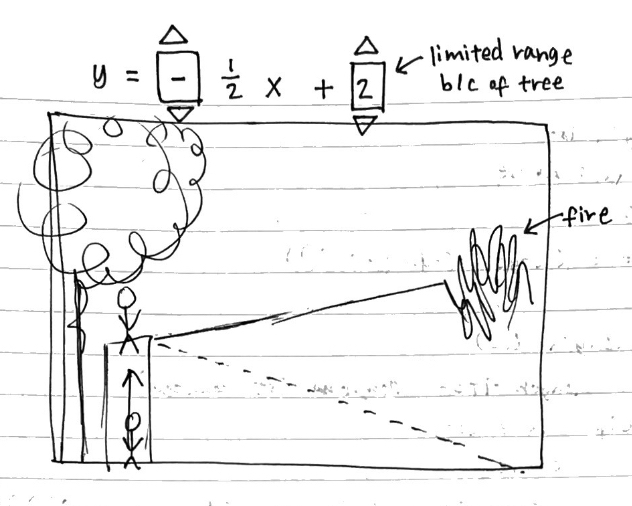 y = - 1/2 x + 2
limited range
b/c of tree
fire